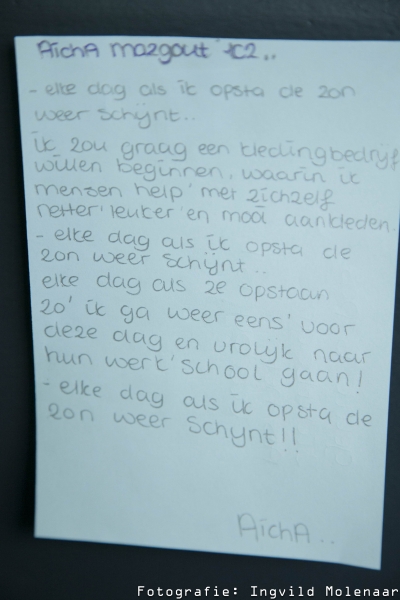 Aicha mazgout 1C2..
- elke dag als ik opsta de zon
weer schijnt..
ik zou graag een kledingbedrijf
willen beginnen, waarin ik
mensen help' met zichzelf
netter' leuker' en mooi aankleden.
- elke dag als ik opsta de
zon weer schijnt..
elke dag als ze opstaan
zo' ik ga weer eens' voor
deze dag en vrolijk naar
hun werk' school gaan!
- elke dag als ik opsta de
zon weer schynt!!
Aicha..
Fotografie: Ingvild Molenaar